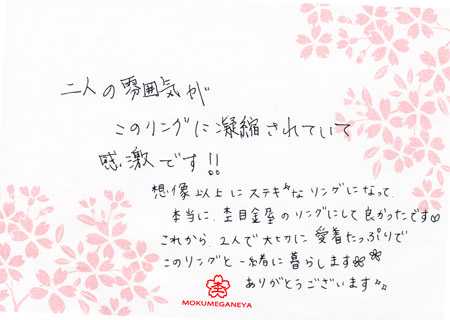 二人の雰囲気が
このリングに凝縮されていて
感激です!!
想像以上にステキなリングになって、
本当に、杢目金屋のリングにして良かったです♡
これから、2人で大切に愛着たっぷりで
このリングと一緒に暮らします
ありがとうございます
MOKUMEGANEYA